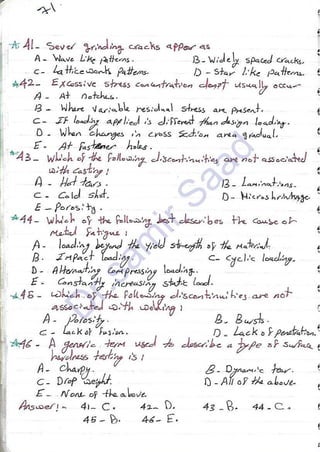 71
41- Sever grinding cracks appear as
A- Wave Like patterns. B- Widely spaced cracks.
C- Lattice work patterns. D- Star like patterns.
42- Excessive stress concentration don't usually occur
A- At notches.
B- Where variable residual stress are present.
C- If loading applied is different than design loading.
D- When changes in cross section area gradual.
E- At fastener holes.
43- Which of the following discontinuities are not associated
with casting:
A- Hot tears. B- Laminations.
C- Cold shot. D- Microshrinkage
E- Porosity.
44- Which of the following best describes the cause of
Metal fatigue:
A- loading beyond the yield strength of the material.
B. Impact loading. C- cyclic loading.
D- Alternating compressing loading.
E- Constantly increasing static load.
45- which of the following discontinuities are not
associated with welding:
A- Porosity. B- Bursts.
C- Lack of fusion. D- Lack of penetration.
46- A generic term used to describe a type of surface
hardness testing is:
A- Charpy. B- Dynamic tear.
C- Drop weight. D- All of the above.
E- None of the above.
Answer:- 41- C. 42- D. 43-B. 44-C.
45- B. 46- E.